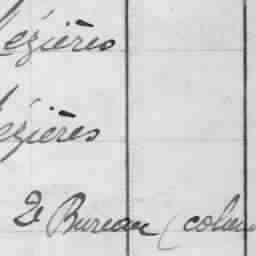 Mézières
Mézières
2e Bureau (colon